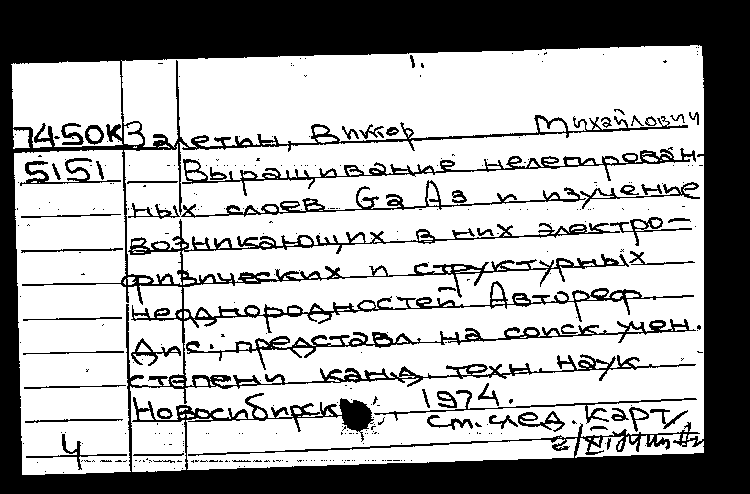 1.
74-50К Залетин, Виктор Михайлович
5151 Выращивание нелегирован-
ных слоев GaAs и изучение
возникающих в них электро-
физических и структурных
неоднородностей Автореф.
Дис., представл. на соиск. учен.
степени канд. техн. наук.
Новосибирск, 1974.
см. след. карт
Ч